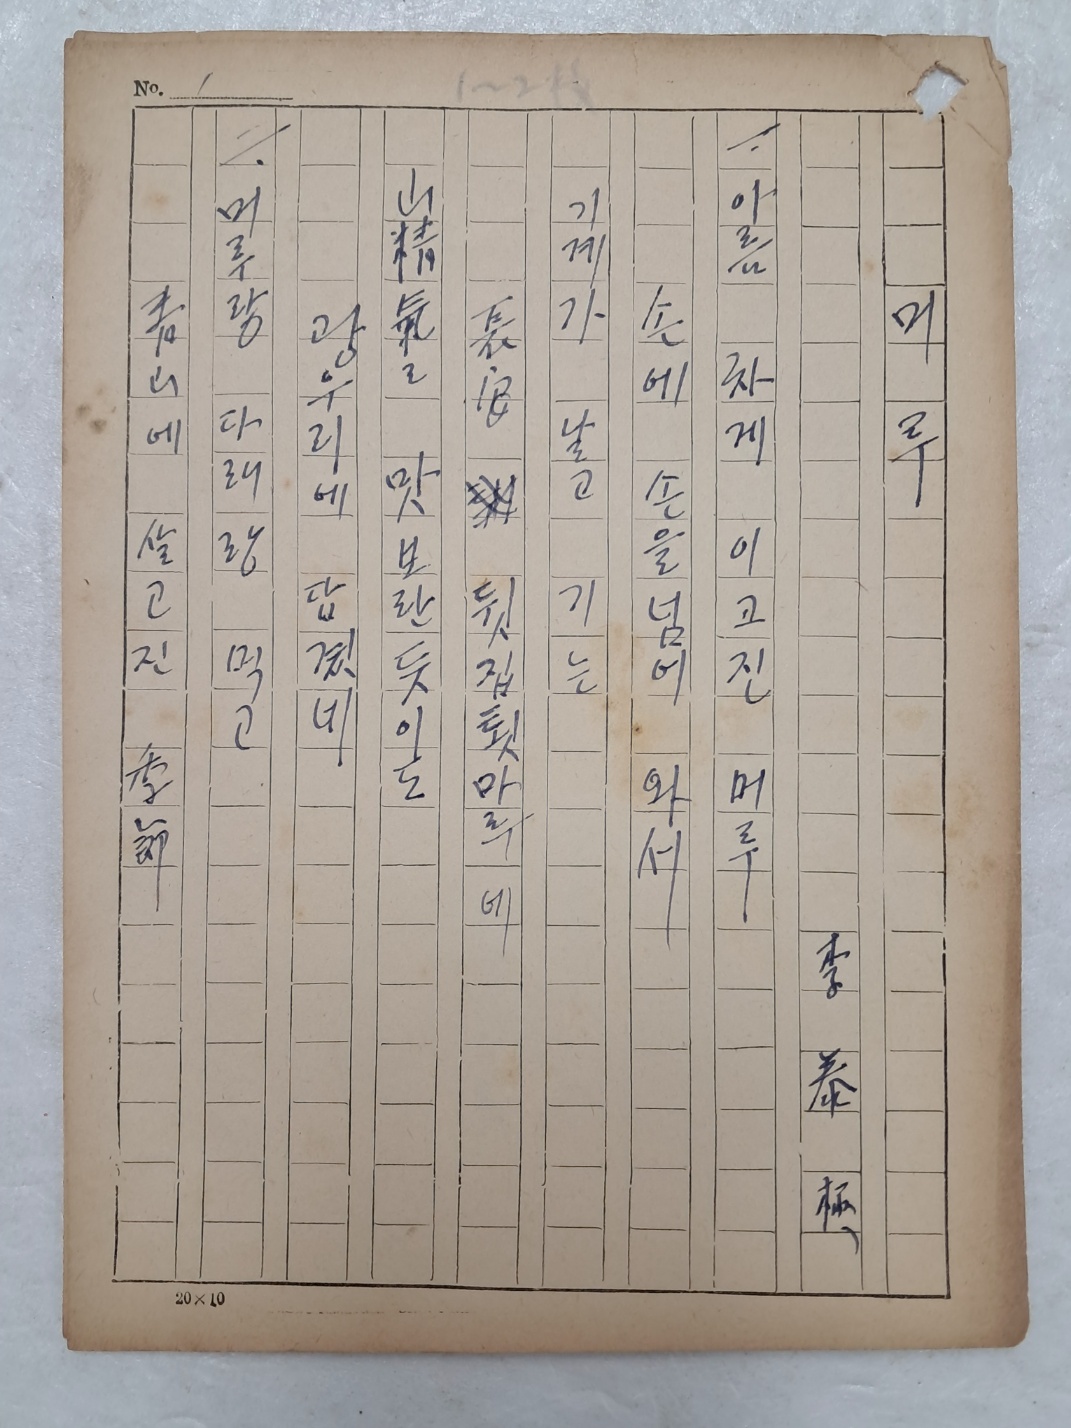 No. 1
머루
李泰極
1. 아름 차게 이고진 머루
손에 손을 넘어 와서
기계가 날고 기는
長安 뒷집툇마루에
山精氣ㄹ 맛보란듯이도
광우리에 담겼네
2. 머루랑 다래랑 먹고
靑山에 살고진 季節
20×10